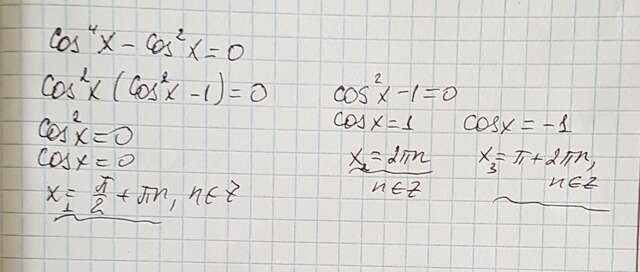 cos⁴x − cos²x = 0
cos²x (cos²x − 1) = 0
cos²x = 0
cosx = 0
x₁ = π/2 + πn, n∈Z
cos²x − 1 = 0
cosx = 1
x₂ = 2πn
n∈Z
cosx = −1
x₃ = π + 2πn,
n∈Z